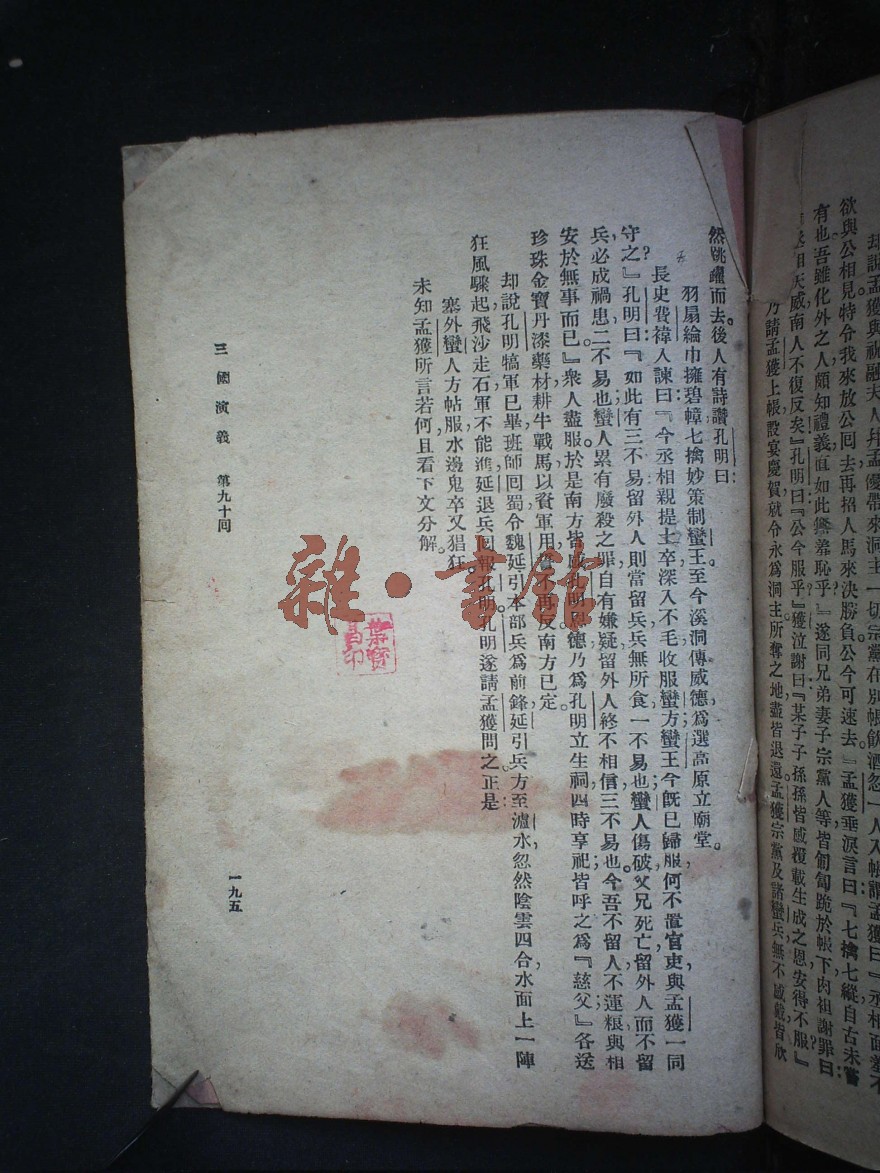 却說孟獲與祝融夫人幷孟優帶來洞主一切宗黨在別帳飲酒忽一人入帳謂孟獲曰『丞相面羞不
欲與公相見特令我來放公回去再招人馬來決勝負公今可速去』孟獲垂淚言曰『七擒七縱自古未嘗
有也吾雖化外之人頗知禮義直如此無羞恥乎』遂同兄弟妻子宗黨人等皆匍匐跪於帳下肉袒謝罪曰
丞相天威南人不復反矣』孔明曰『公今服乎』獲泣謝曰『某子子孫孫皆感覆載生成之恩安得不服』
乃請孟獲上帳設宴慶賀就令永爲洞主所奪之地盡皆退還孟獲宗黨及諸蠻兵無不感戴皆欣
然跳躍而去。後人有詩讚孔明曰
羽扇綸巾擁碧幢七擒妙策制蠻王至今溪洞傳威德爲選高原立廟堂。
長史費禕入諫曰『今丞相親提士卒深入不毛收服蠻方蠻王今旣已歸服何不置官吏與孟獲一同
守之』孔明曰『如此有三不易留外人則當留兵兵無所食一不易也蠻人傷破父兄死亡留外人而不留
兵必成禍患二不易也蠻人累有廢殺之罪自有嫌疑留外人終不相信三不易也。今吾不留人不運粮與相
安於無事而已』衆人盡服。於是南方皆感孔明恩德乃爲孔明立生祠四時享祀皆呼之爲『慈父』各送
珍珠金寶丹漆藥材耕牛戰馬以資軍用誓不再反南方已定。
却說孔明犒軍已畢班師回蜀令魏延引本部兵爲前鋒延引兵方至瀘水忽然陰雲四合水面上一陣
狂風驟起飛沙走石軍不能進延退兵回報孔明。孔明遂請孟獲問之正是
塞外蠻人方帖服水邊鬼卒又猖狂。
未知孟獲所言若何且看下文分解。
三國演義 第九十回
一九五
雜·書館
葉寶
昌印